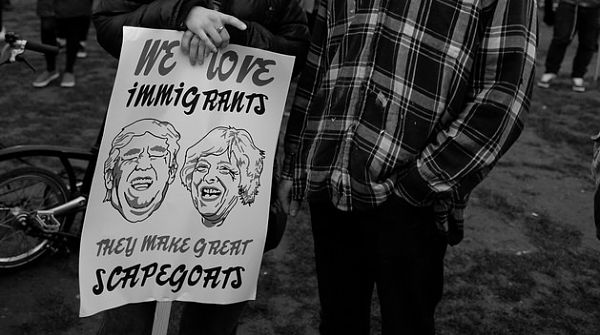 WE LOVE
iMMiGRANTS
THEY MAKE GREAT
SCAPEGOATS